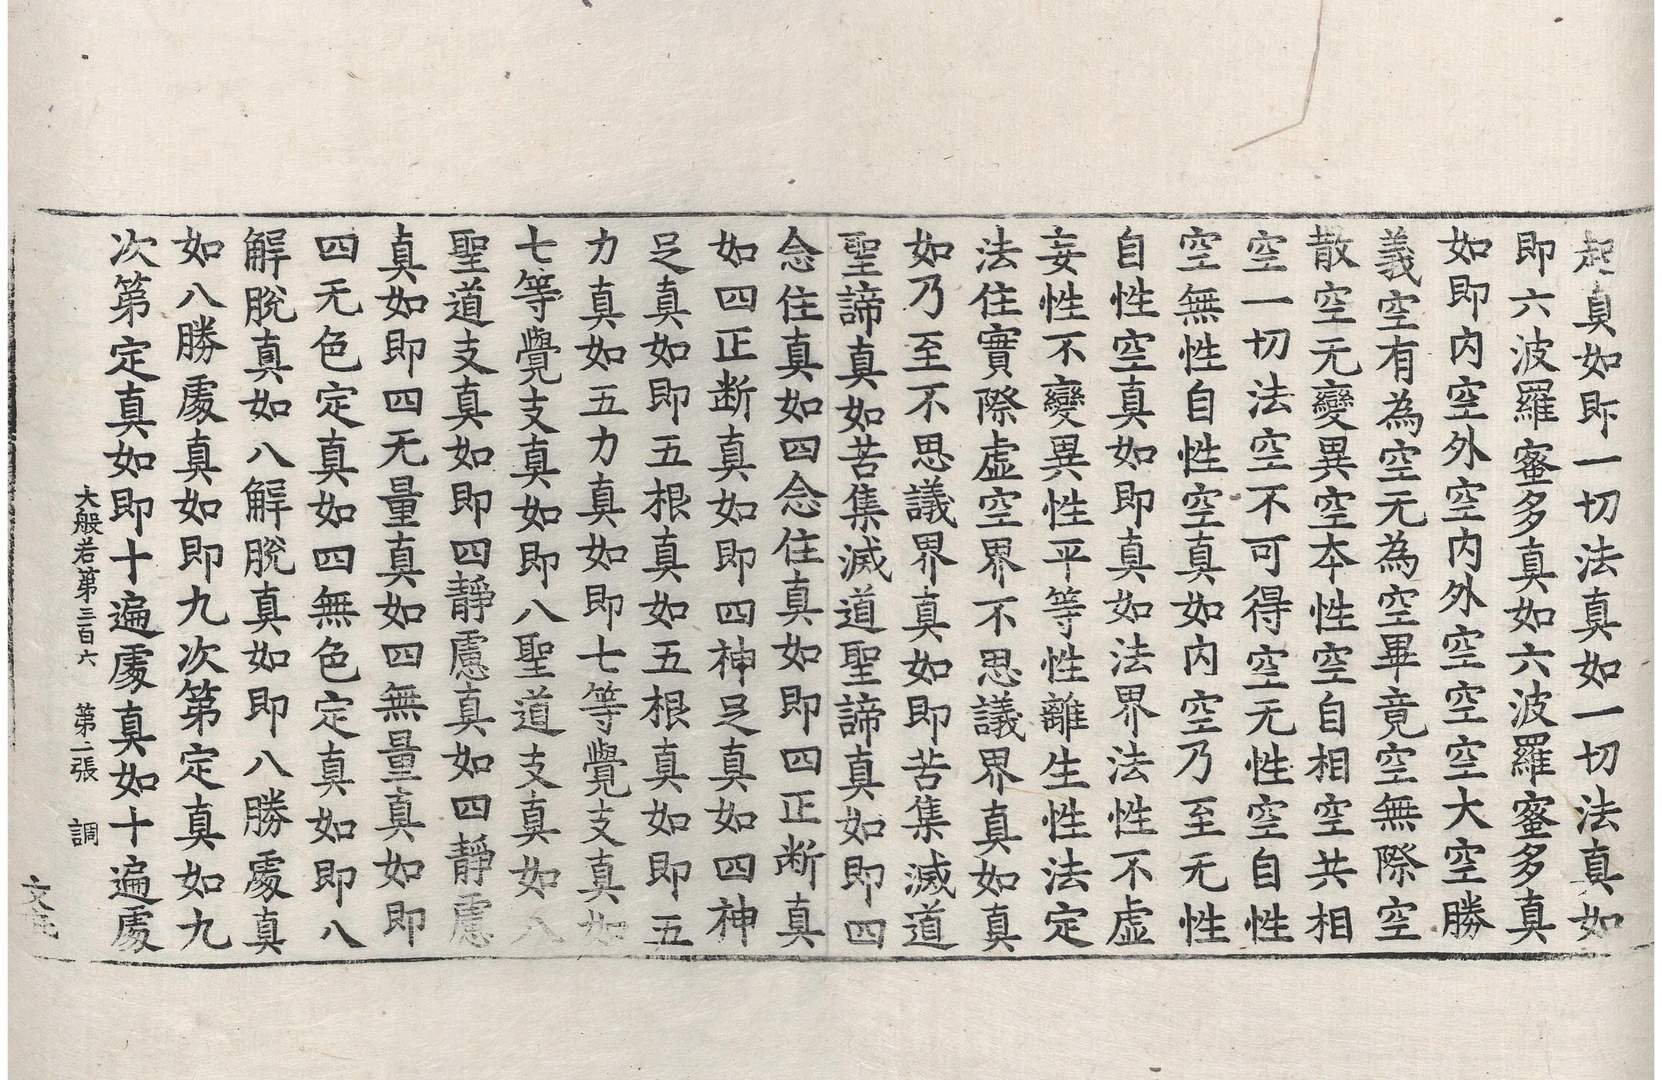 起真如即一切法真如一切法真如
即六波羅蜜多真如六波羅蜜多真
如即內空外空內外空空空大空勝
義空有為空无為空畢竟空無際空
散空无變異空本性空自相空共相
空一切法空不可得空无性空自性
空無性自性空真如內空乃至无性
自性空真如即真如法界法性不虛
妄性不變異性平等性離生性法定
法住實際虛空界不思議界真如真
如乃至不思議界真如即苦集滅道
聖諦真如苦集滅道聖諦真如即四
念住真如四念住真如即四正断真
如四正断真如即四神足真如四神
足真如即五根真如五根真如即五
力真如五力真如即七等覺支真如
七等覺支真如即八聖道支真如八
聖道支真如即四靜慮真如四靜慮
真如即四无量真如四無量真如即
四无色定真如四無色定真如即八
解脫真如八解脫真如即八勝處真
如八勝處真如即九次第定真如九
次第定真如即十遍處真如十遍處
大般若第三百六 第二張 調
文